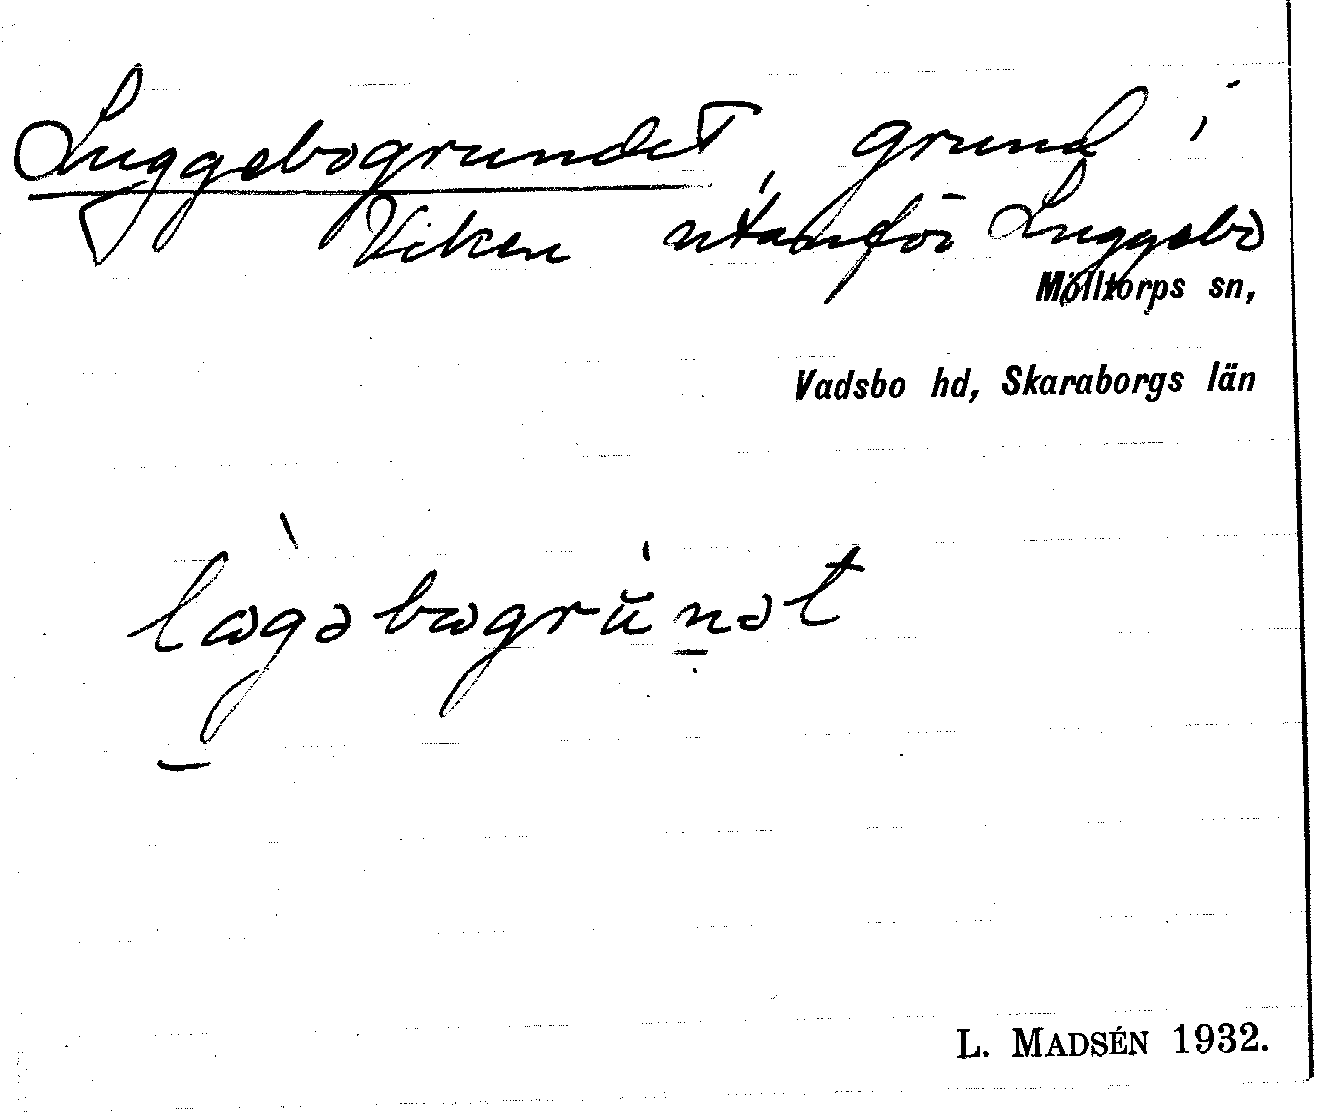 Luggebogrundet, grund i
Viken utanför Luggebo
Mölltorps sn,
Vadsbo hd, Skaraborgs län
L. MADSÉN 1932.